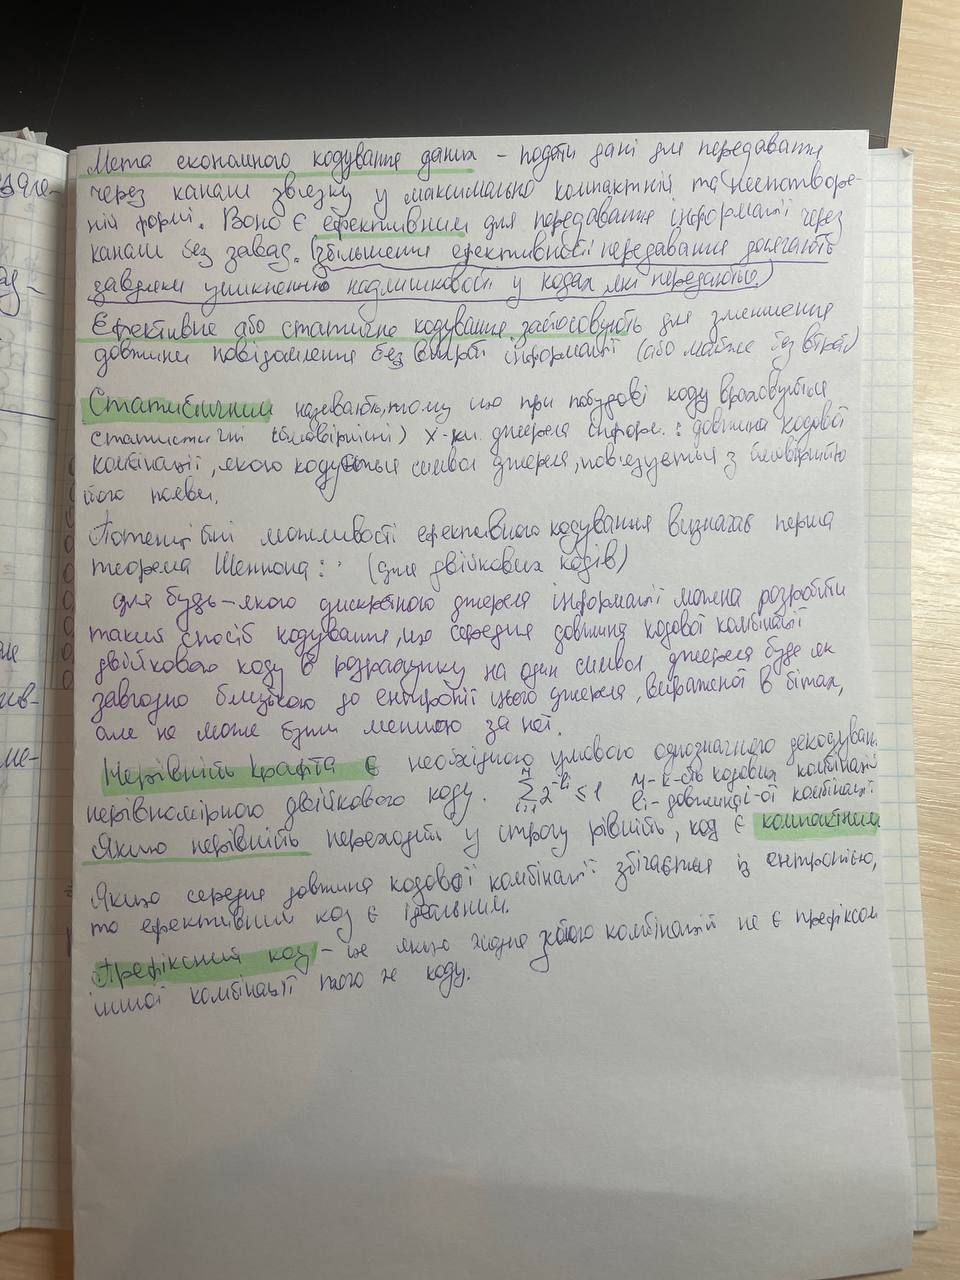 Мета економного кодування даних – подати дані для передавання
через канали зв'язку у максимально компактній та неспотворе-
ній формі. Воно є ефективним для передавання інформації через
канали без завад. (збільшення ефективності передавання досягають
завдяки уникненню надлишковості у кодах які передають.)
Ефективне або статичне кодування застосовують для зменшення
довжини повідомлення без втрат інформації (або майже без втрат)
Статистичним називають, тому що при побудові коду враховуються
статистичні (ймовірнісні) х-ки джерела інформ.: довжина кодової
комбінації, якою кодується символ джерела, пов'язується з ймовірністю
його появи.
Потенційні можливості ефективного кодування визначає перша
теорема Шеннона: (для двійкових кодів)
для будь-якого дискретного джерела інформації можна розробити
такий спосіб кодування, що середня довжина кодової комбінації
двійкового коду в розрахунку на один символ джерела буде як
завгодно близькою до ентропії цього джерела, вираженої в бітах,
але не може бути меншою за неї.
Нерівність Крафта є необхідною умовою однозначного декодуван
нерівномірного двійкового коду. ∑ 2^{-li} ≤ 1 к-сть кодових комбінації
li – довжина i-ої комбінації
Якщо нерівність переходить у строгу рівність, код є компактним
Якщо середня довжина кодової комбінації збігається із ентропією,
то ефективний код є ідеальним.
Префіксний код – це якщо жодна з його комбінацій не є префіксом
іншої комбінації того ж коду.